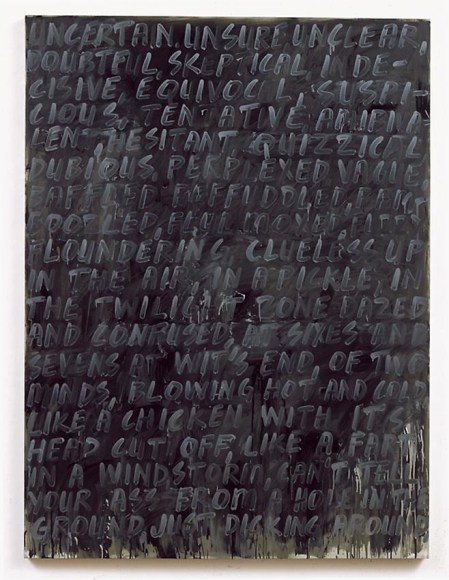 UNCERTAIN, UNSURE, UNCLEAR,
DOUBTFUL, SKEPTICAL, INDE-
CISIVE, EQUIVOCAL, SUSPI-
CIOUS, TENTATIVE, AMBIVA-
LENT, HESITANT, QUIZZICAL,
DUBIOUS, PERPLEXED, VAGUE,
BAFFLED, BEFUDDLED,
FLOUNDERING, CLUELESS, UP
IN THE AIR, IN A PICKLE, IN
THE TWILIGHT ZONE, DAZED
AND CONFUSED, AT SIXES AND
SEVENS, AT WIT'S END, OF TWO
MINDS, BLOWING HOT AND COLD,
LIKE A CHICKEN WITH ITS
HEAD CUT OFF, LIKE A FART
IN A WINDSTORM, CAN'T TELL
YOUR ASS FROM A HOLE IN THE
GROUND, JUST DICKING AROUND